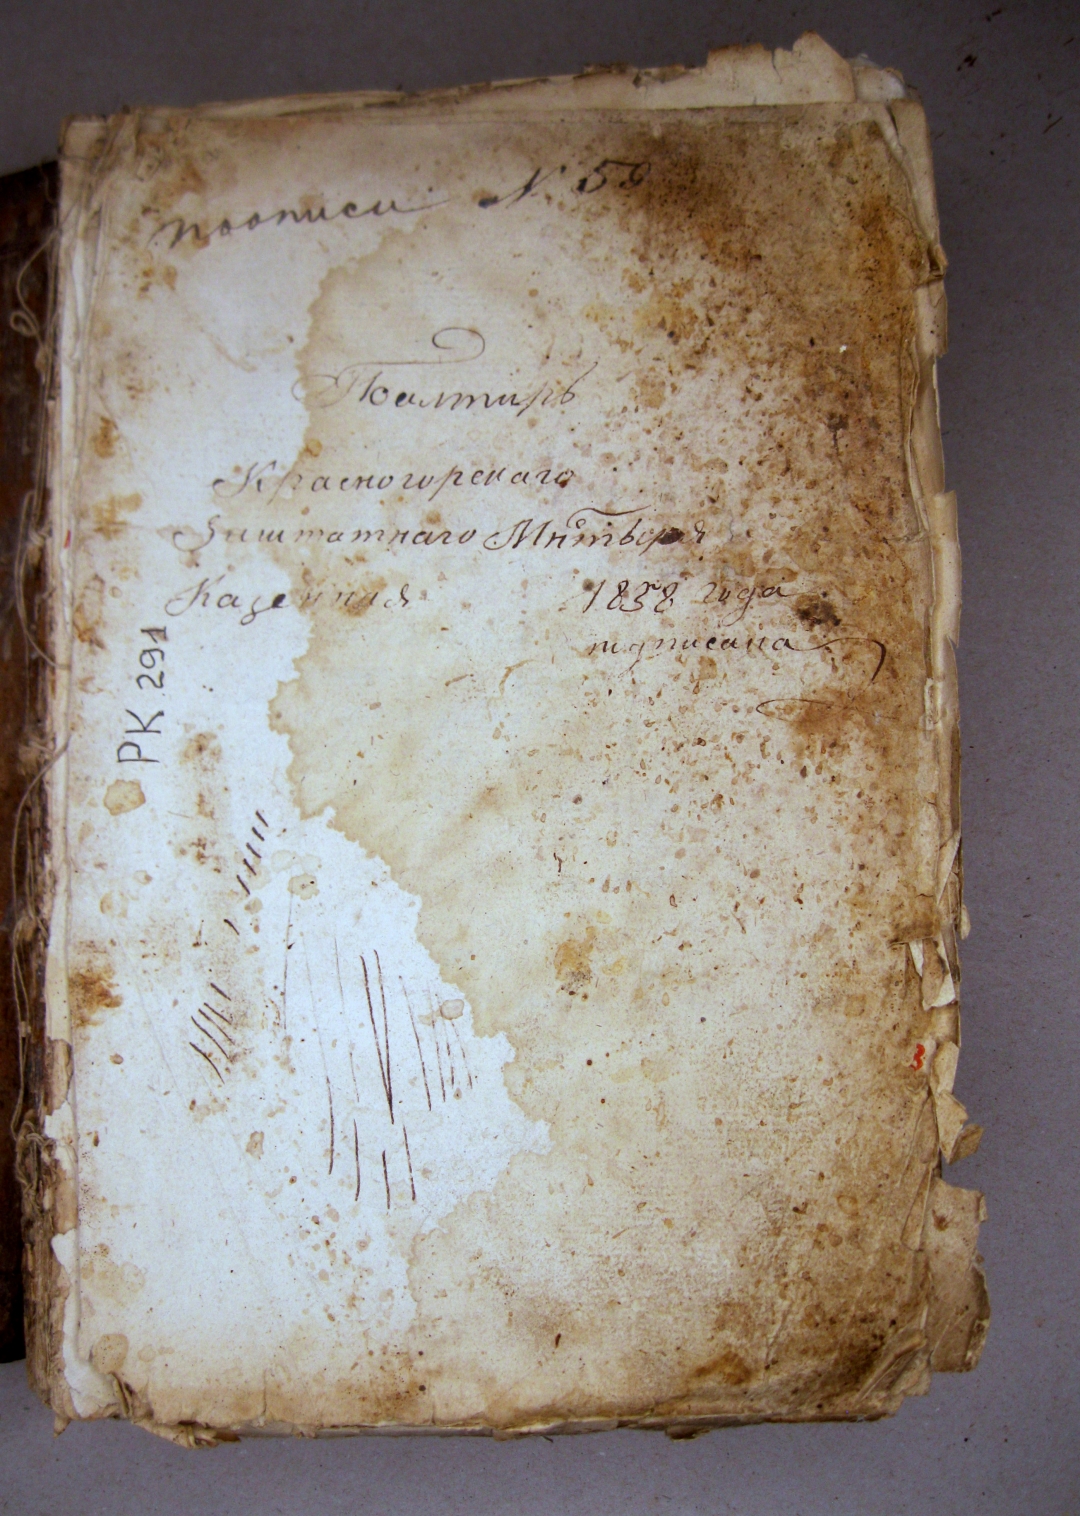 по описи № 59
Псалтирь
Красногорскаго
Заштатнаго Мнтⷭ҇ыря
Казенная 1858 года
подписана
РК 291
3